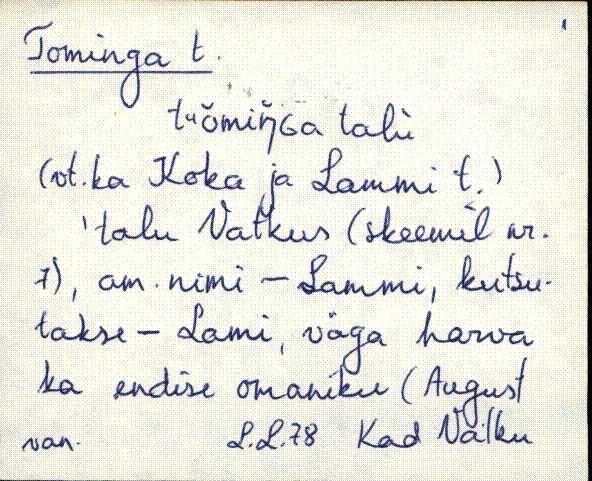 Tominga t.
tᵘŏmiŋ̆Ga talù
(vt. ka Koka ja Lammi t.)
'talu Vatkus (skeemil nr.
7), am. nimi – Lammi, kutsu-
takse – Lami, väga harva
ka endise omaniku (August
van. L.L.78 Kad Valku